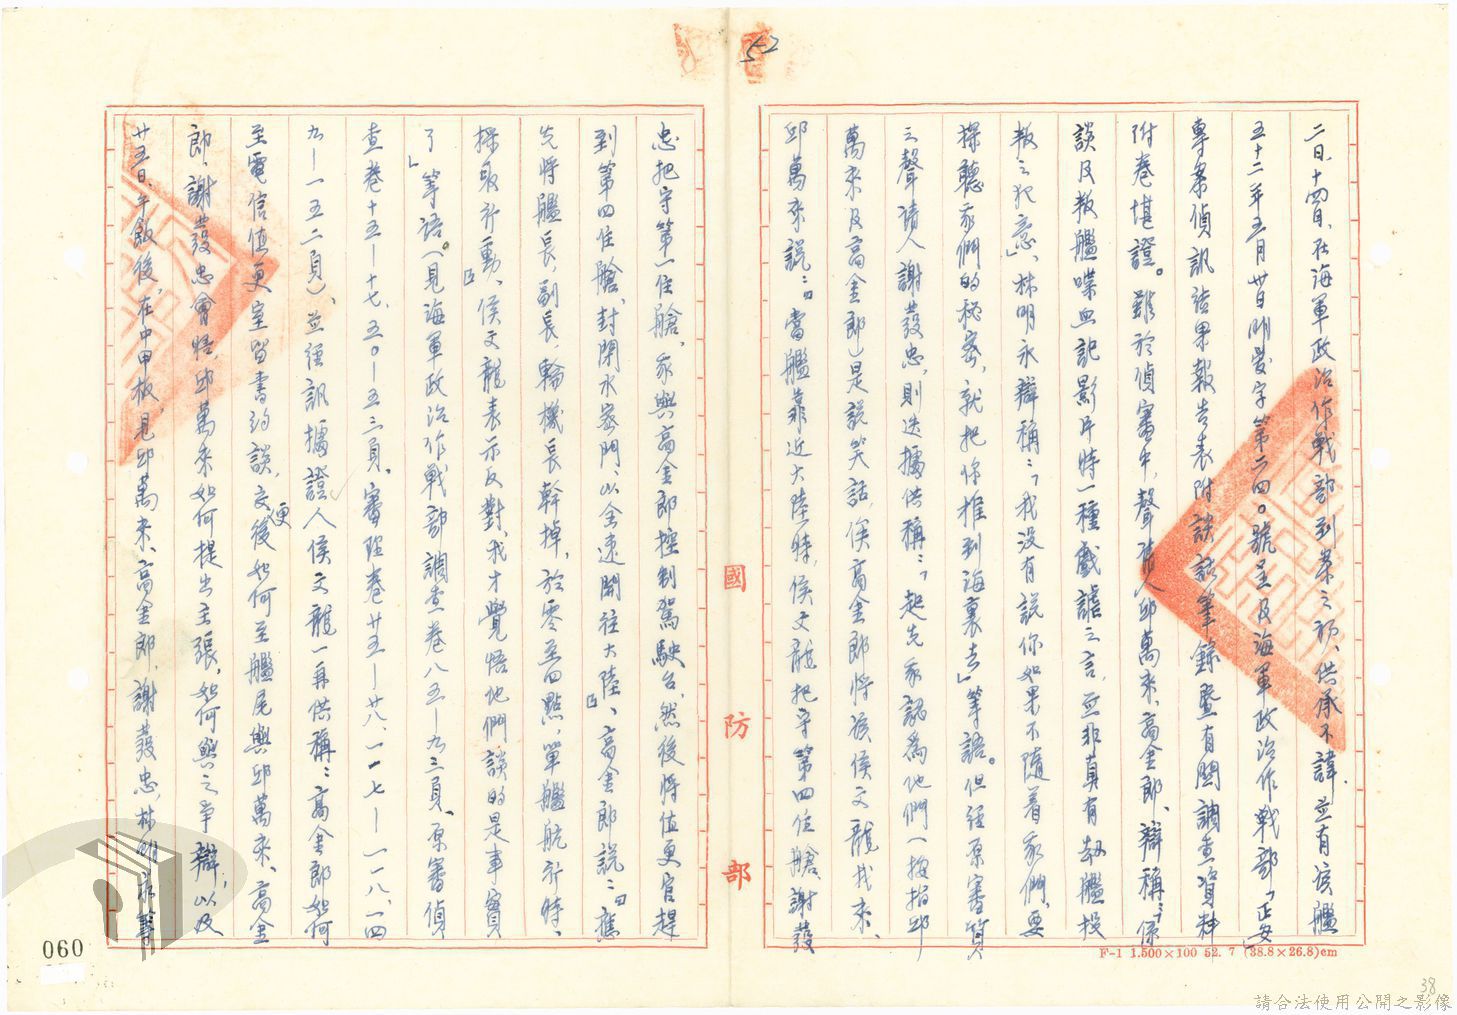 52
二日、十四日、在海軍政治作戰部到案之初、供承不諱、並有該艦
五十二年五月廿日明晏字第二四〇號呈及海軍政治作戰部「正安」
專案偵訊結果報告表附談話筆錄暨有關調查資料
附卷堪證。雖於偵審中、聲請人邱萬來、高金郎、辯稱:「係
談及叛艦喋血記影片時一種戲謔之言、並非真有劫艦投
叛之犯意」、林明永辯稱:「我沒有說你如果不隨着我們、要
探聽我們的秘密、就把你推到海裏去」等語。但經原審質
之聲請人謝發忠、則迭據供稱:「起先我認為他們(按指邱
萬來及高金郎)是說笑話、侯高金郎將該侯文龍找來、
邱萬來說:『當艦靠近大陸時、侯文龍把守第四住艙、謝發
忠把守第一住艙、我與高金郎控制駕駛台、然後將值更官趕
到第四住艙、封閉水密門、以全速開往大陸』、高金郎說:『應
先將艦長、副長、輪機長幹掉、於零至四點、單艦航行時、
採取行動』、侯文龍表示反對、我才覺悟他們談的是事實
了」等語。(見海軍政治作戰部調查卷八五—九三頁、原審偵
查卷十五—十七、五〇—五三頁、審理卷廿五—廿八、一一七—一一八、一四
九—一五二頁)、並經訊據證人侯文龍一再供稱:高金郎如何
至電信值更室留書約談、交更後如何至艦尾與邱萬來、高金
郎、謝發忠會晤、邱萬來如何提出主張、如何與之爭辯、以及
廿五日、午飯後、在中甲板、見邱萬來、高金郎、謝發忠、林明永等
國防部
F-1 1.500×100 52. 7 (38.8×26.8)cm
060
38
請合法使用公開之影像